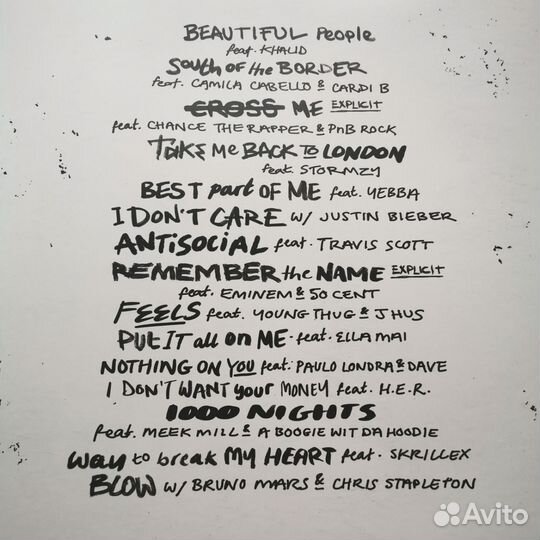 BEAUTIFUL People
feat. KHALID
South OF the BORDER
feat. CAMILA CABELLO & CARDI B
CROSS ME EXPLICIT
feat. CHANCE THE RAPPER & PnB ROCK
TAKE Me BACK To LONDON
feat. STORMZY
BEST part OF ME feat. YEBBA
I DON'T CARE W/ JUSTIN BIEBER
ANTiSOCIAL feat. TRAVIS SCOTT
REMEMBER the NAME EXPLICIT
feat. EMINEM & 50 CENT
FEELS feat. YOUNG THUG & J HUS
PUT IT all on ME. feat. ELLA MAI
NOTHING ON YOU feat. PAULO LONDRA & DAVE
I DON'T WANT your MONEY feat. H.E.R.
1000 NIGHTS
feat. MEEK MILL & A BOOGIE WIT DA HOODIE
way to break MY HEART feat. SKRILLEX
BLOW W/ BRUNO MARS & CHRIS STAPLETON
Avito